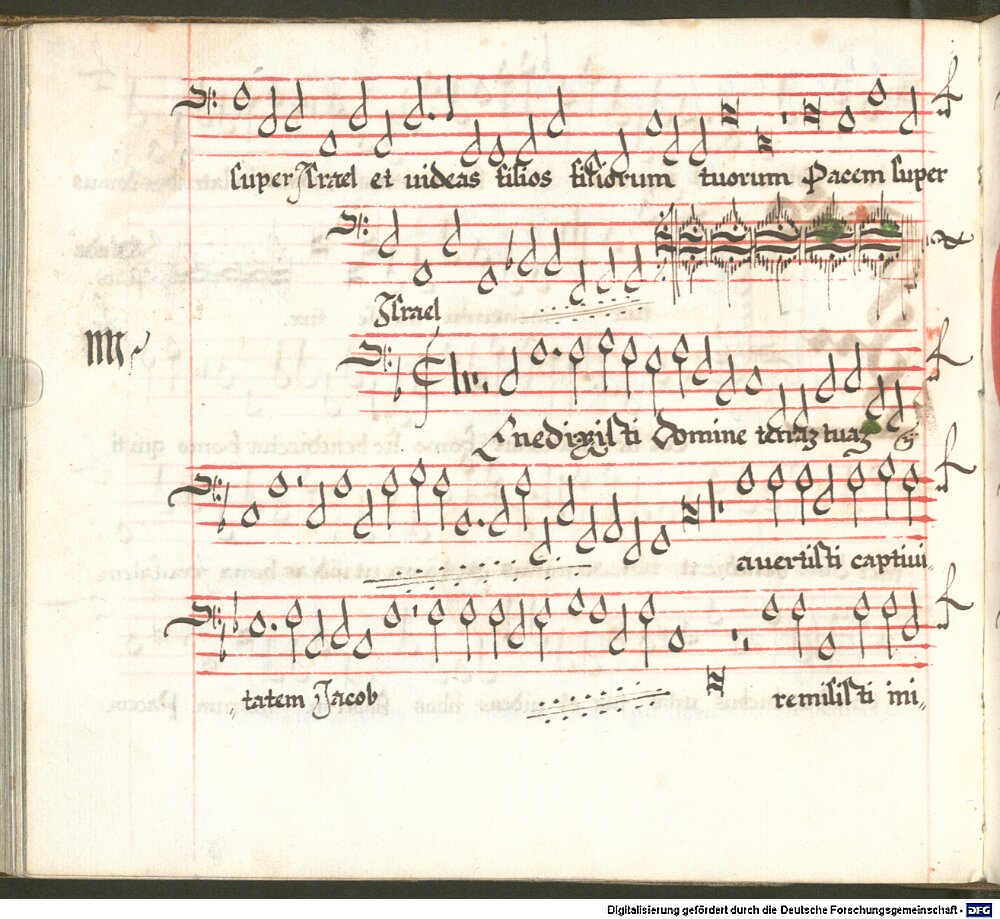 super Israel et uideas filios filiorum tuorum Pacem super
Israel
Enedixisti Domine terraꝫ tuaꝫ
auertisti captiui
tatem Jacob remisisti ini„
Digitalisierung gefördert durch die Deutsche Forschungsgemeinschaft - DFG